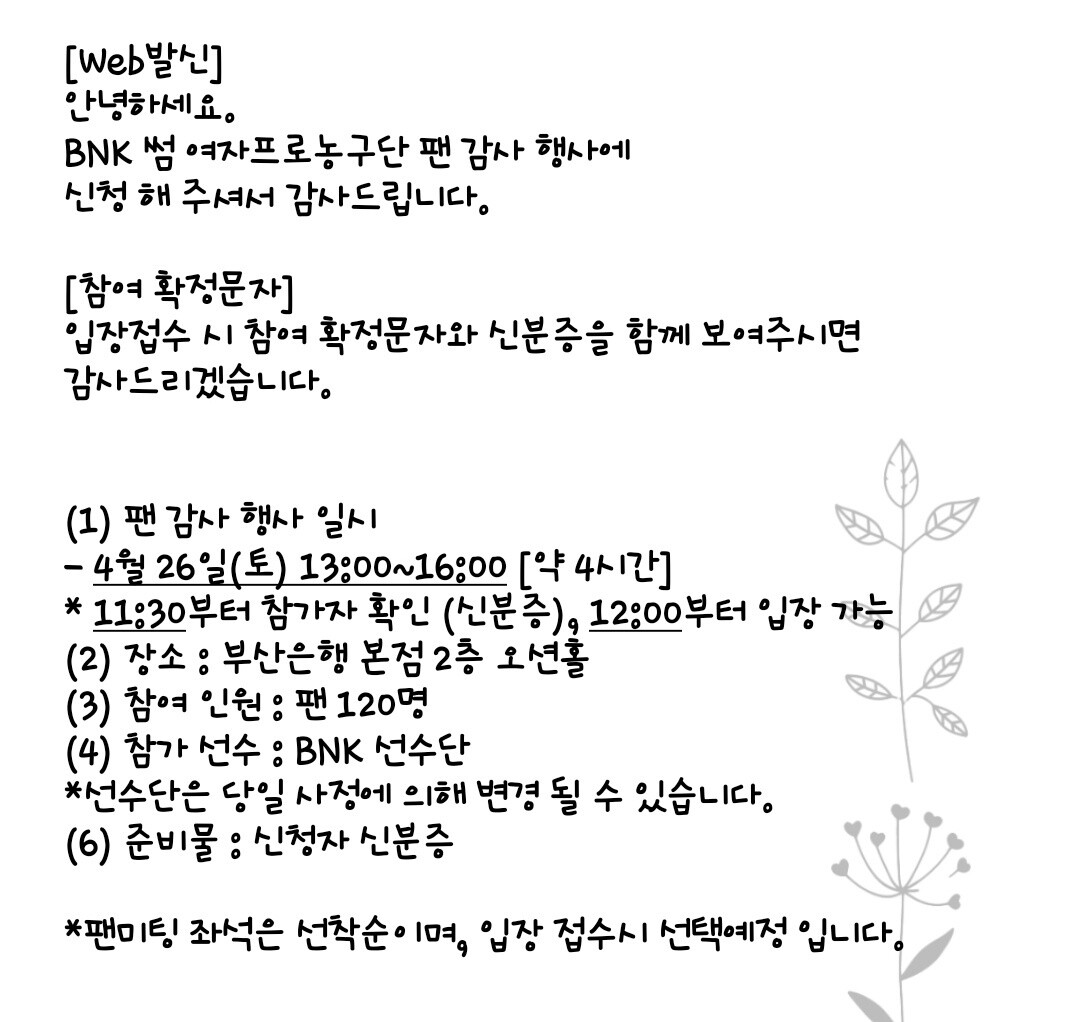 [Web발신]
안녕하세요.
BNK 썸 여자프로농구단 팬 감사 행사에
신청 해 주셔서 감사드립니다.
[참여 확정문자]
입장접수 시 참여 확정문자와 신분증을 함께 보여주시면
감사드리겠습니다.
(1) 팬 감사 행사 일시
- 4월 26일(토) 13:00~16:00 [약 4시간]
* 11:30부터 참가자 확인 (신분증), 12:00부터 입장 가능
(2) 장소 : 부산은행 본점 2층 오션홀
(3) 참여 인원 : 팬 120명
(4) 참가 선수 : BNK 선수단
*선수단은 당일 사정에 의해 변경 될 수 있습니다.
(6) 준비물 : 신청자 신분증
*팬미팅 좌석은 선착순이며, 입장 접수시 선택예정 입니다.